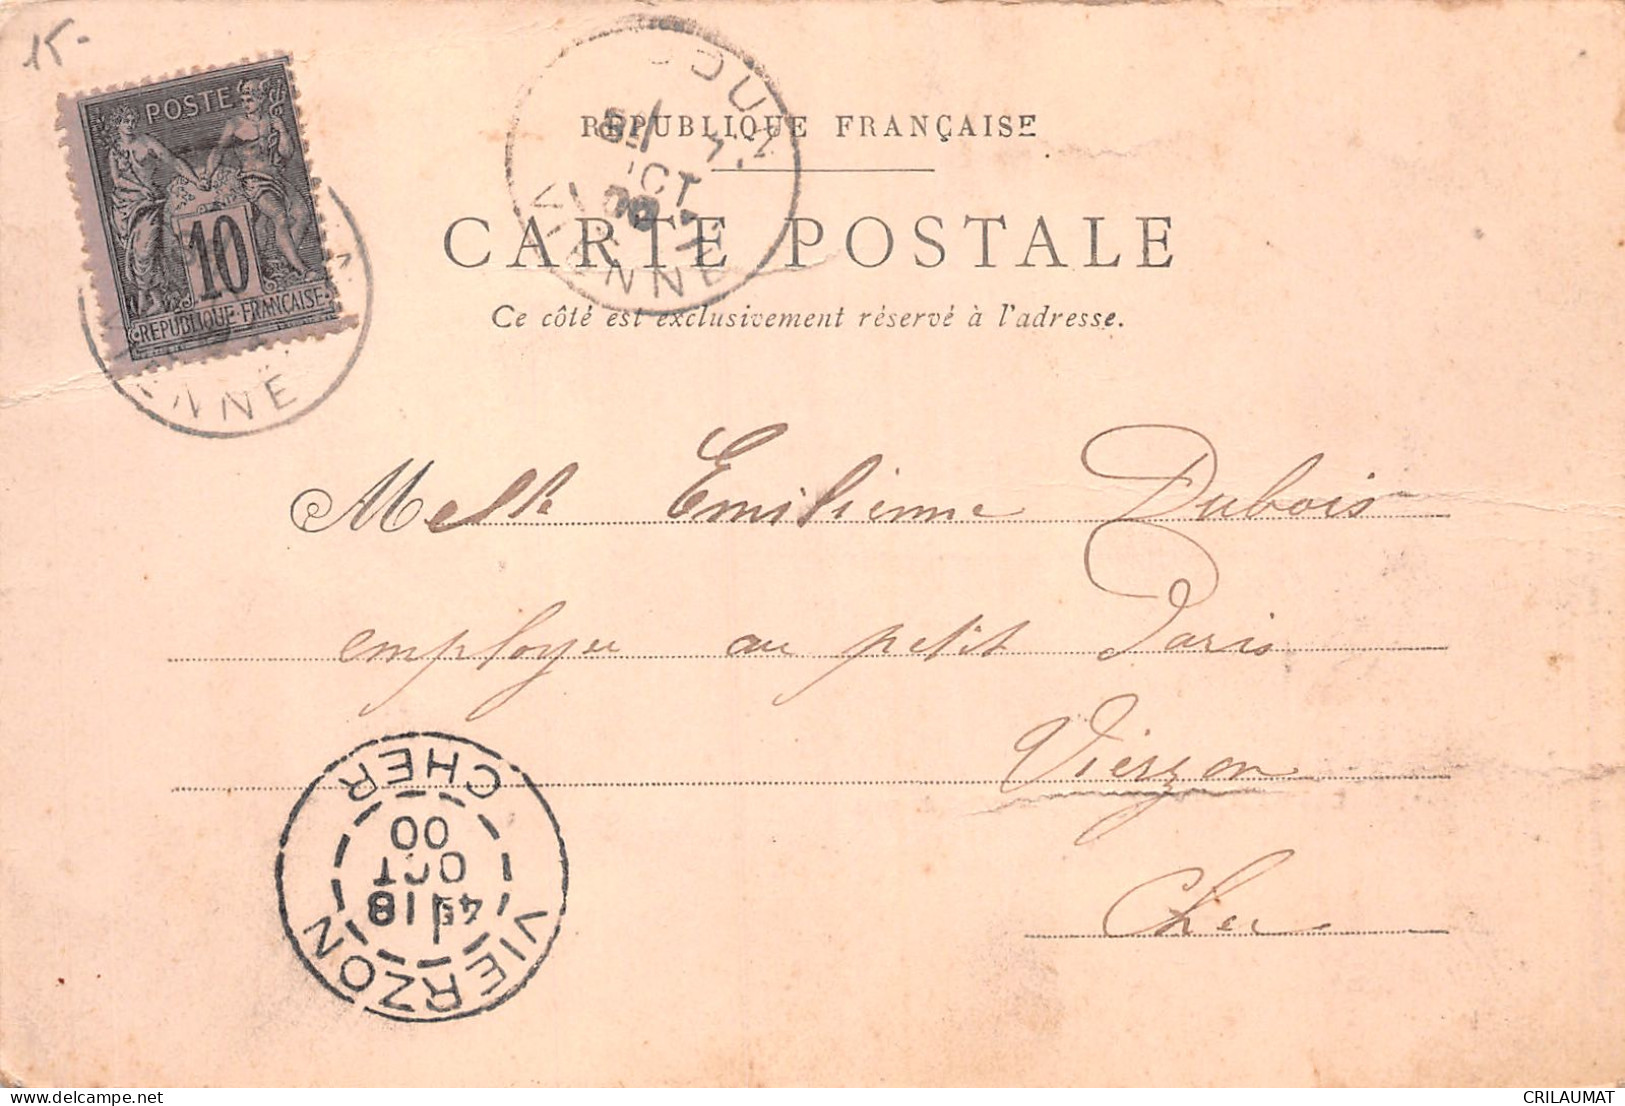 15-
POSTE
10
REPUBLIQUE FRANÇAISE
NNE
VIENNE
OCT
RÉPUBLIQUE FRANÇAISE
CARTE POSTALE
Ce côté est exclusivement réservé à l'adresse.
Melle Emilienne Dubois
employée au petit Paris
Vierzon
Cher
VIERZON
CHER
4E 18
OCT
00
CRILAUMAT